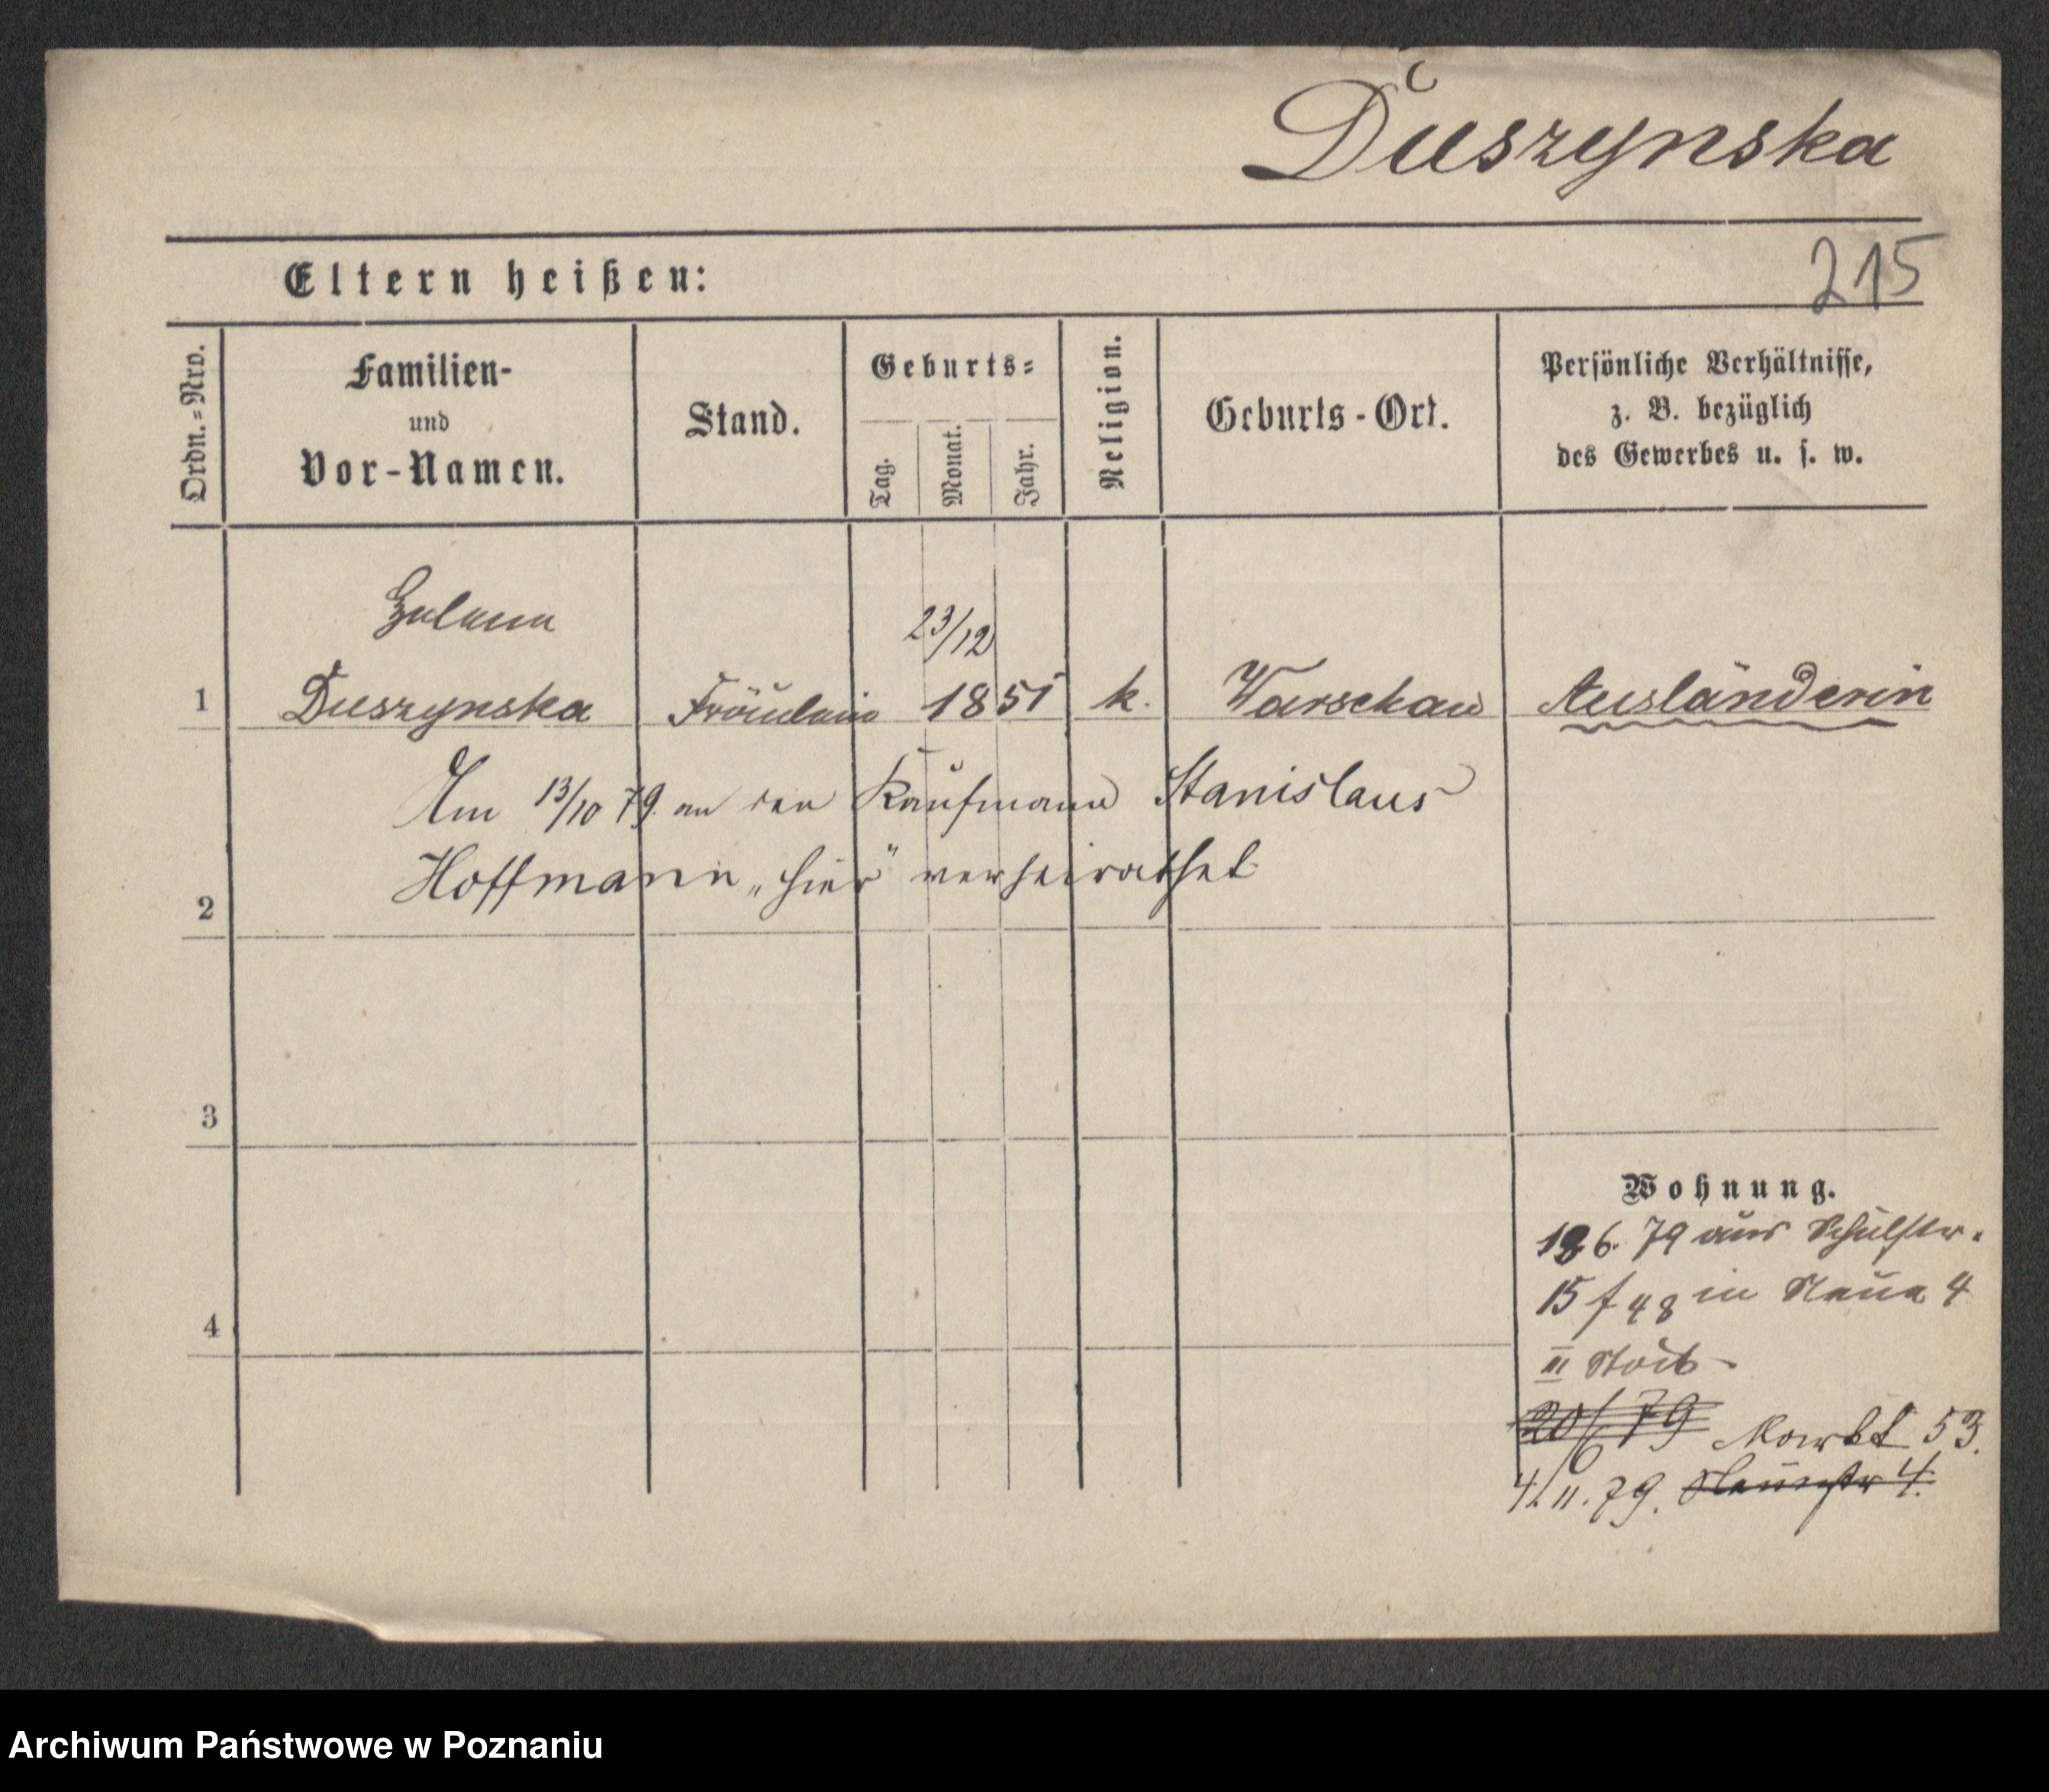 Duszynska
215
Eltern heißen:
Ordn.=Nro.
Familien-
und
Vor-Namen.
Stand.
Geburts=
Tag.
Monat.
Jahr.
Religion.
Geburts-Ort.
Persönliche Verhältnisse,
z. B. bezüglich
des Gewerbes u. s. w.
23/12
1 Duszynska Fräulein 1851 k. Warschau Ausländerin
Am 13/10 79. an den Kaufmann Stanislaus
Hoffmann „hier“ verheirathet
2
3
4
Wohnung.
6. 79 aus Schulstr.
15 in Neue 4
III Stock
20/6 79 Markt 53.
4/11. 79. Neuestr 4.
Archiwum Państwowe w Poznaniu